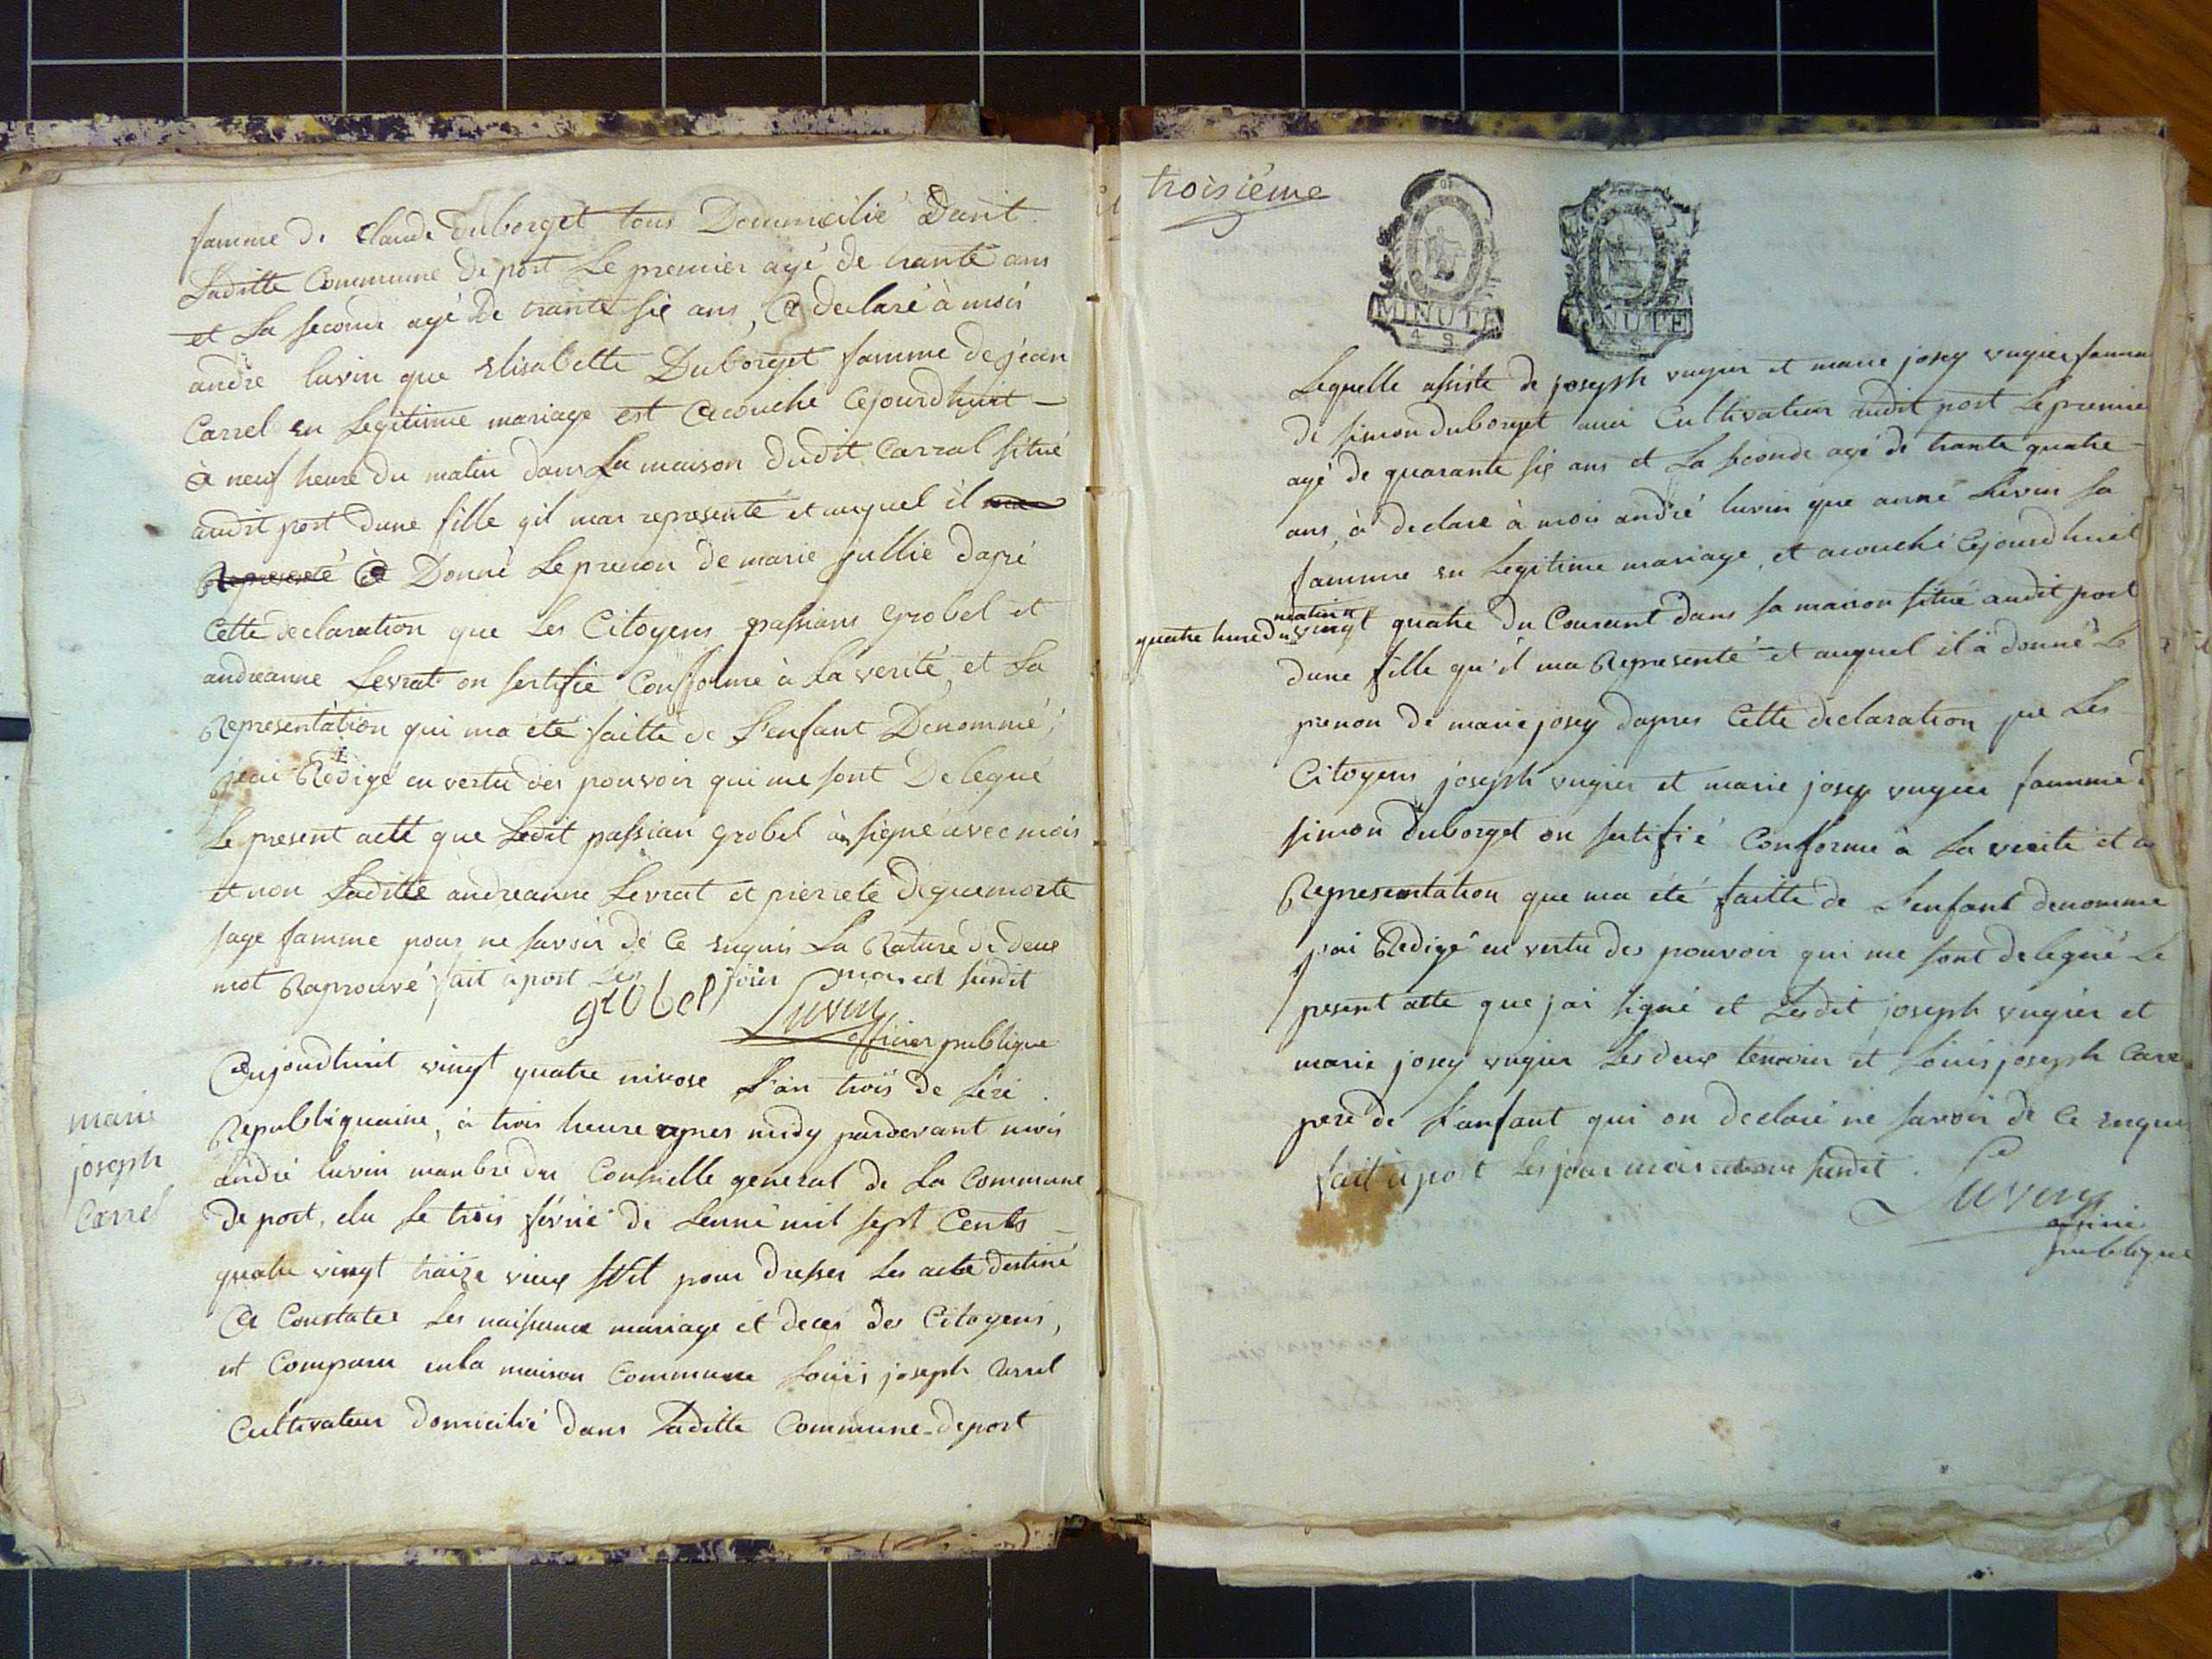 famme de claude Duborget tous Dommicilié Dant
Laditte Commune de port Le premier agé de trante ans
et La seconde agé de trante six ans, a declaré à mois
andré luvin que Elisabette Duborget famme de jean
Carrel en Legitime mariage est acouché Cejourdhuit
à neuf heure du matin dans La maison dudit Carral sitüé
audit port dune fille qil mar representé et auquel il
Representé a Donné Le prenon de marie jullie daprè
Cette declaration que Les Citoyens passians grobel et
andreanne Levrat on sertifié Confforme à La verité, et La
Representation qui ma été faitte de L'enfant Denommé,
jeai Redigé en vertu des pouvoir qui me sont Delequé
Le present acte que Ledit passian grobel à signé avec mois
et non Laditte andreanne Levrat et pierrete Deguemorte
sage famme pour ne savoir de Ce enquis La Rature de deux
mot Raprouvé fait a port Les jour mois et susdit
grobel Luvin
officier publique
marie
joseph
Carrel
Cejourdhuit vingt quatre nivose L'an trois de Lere
Republiquaine, à trois heure apres midy pardevant mois
andré luvin manbre du Conseille general de La Commune
De port, elu Le trois fevrié de Lenné mil sept Cents
quatre vingt traize vieux stil pour dresser Les acte destiné
a Constater Les naissance mariage et deces des Citoyens,
et Comparu enla maison Commune Louis joseph Carrel
Cultivateur domicilié dans Laditte Commune deport
troisiéme
MINUTE
4 S
MINUTE
4 S
Lequelle assisté de joseph vugier et marie josey vugier famme
de simon duborget aussi Cultivateur dudit port Le premier
agé de quarante six ans et La seconde agé de trante quatre
ans, à declare à mois andré luvin que anne Luvin sa
famme en Legitime mariage, et acouché Cejourdhuit
matin
quatre heure du vingt quatre du Courant dans sa maison sitüé audit port
dune fille qu'il ma Representé et auquel il à donné Le
prenon de marie josey dapres Cette declaration que Les
Citoyens joseph vugier et marie josey vugier famme d
simon Duborget on sertifié Conforme à La verité et
Representation que ma été faitte de L'enfant denomme
j'ai Redigé en vertu des pouvoir qui me sont delequé Le
present atte que jai signé et Lesdit joseph vugier et
marie josey vugier Les deux temoin et Louis joseph Carre
pere de L'anfant qui on declaré ne savoir de Ce enquis
fait à port Les jour mois susdit
Luvin
officie
publique